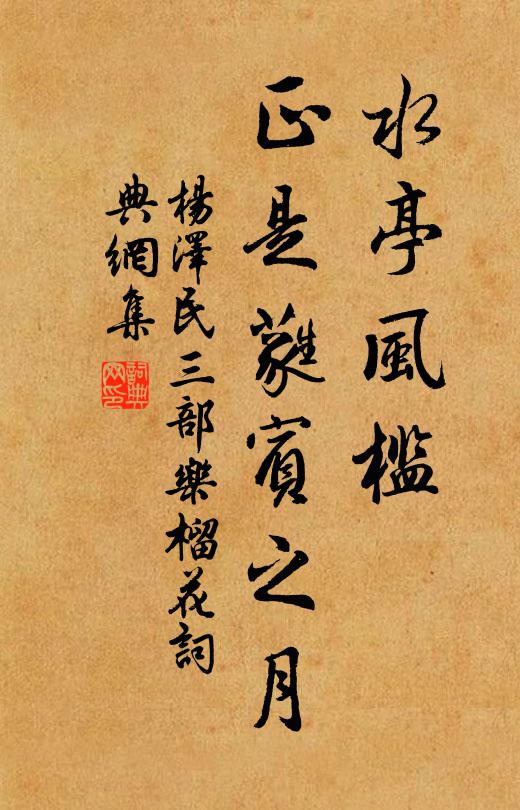 水亭風檻
正是蕤賓之月
楊澤民三部樂榴花詞
典網集
詞典網印